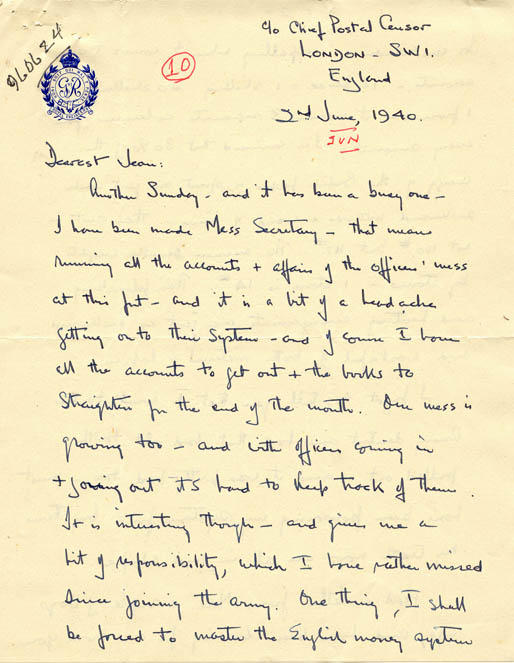 960624
c/o Chief Postal Censor
LONDON - SW1.
England
10
2nd June, 1940.
JUN
Dearest Jean:
Another Sunday - and it has been a busy one -
I have been made Mess Secretary - that means
running all the accounts + affairs of the officers' mess
at this fort - and it is a bit of a headache
getting on to their system - and of course I have
all the accounts to get out + the books to
straighten for the end of the month. Our mess is
growing too - and with officers coming in
+ going out its hard to keep track of them.
It is interesting though - and gives me a
bit of responsibility, which I have rather missed
since joining the army. One thing, I shall
be forced to master the English money system